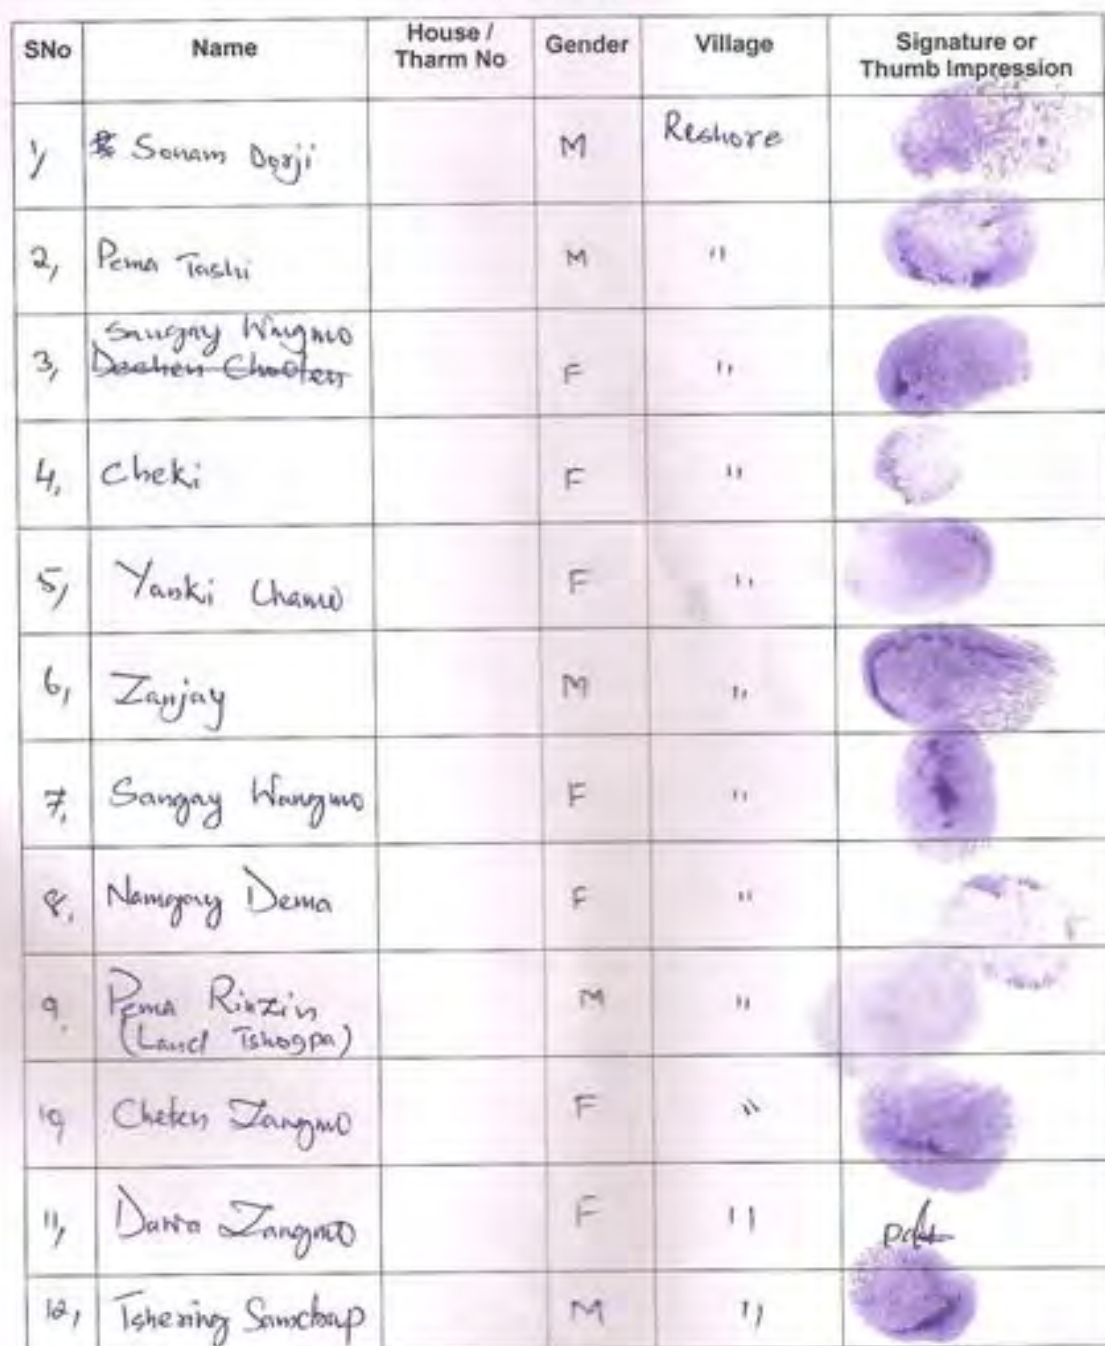 SNo Name House / Tharm No Gender Village Signature or Thumb Impression
1, Sonam Dorji M Reshore
2, Pema Tashi M "
3, Sangay Wangmo F "
Dechen Choden
4, Cheki F "
5, Yanki Chamo F "
6, Zanjay M "
7, Sangay Wangmo F "
8, Namgay Dema F "
9, Pema Rinzin M "
(Land Tshogpa)
10, Cheten Zangmo F "
11, Dawa Zangmo F "
12, Tshering Samdrup M "